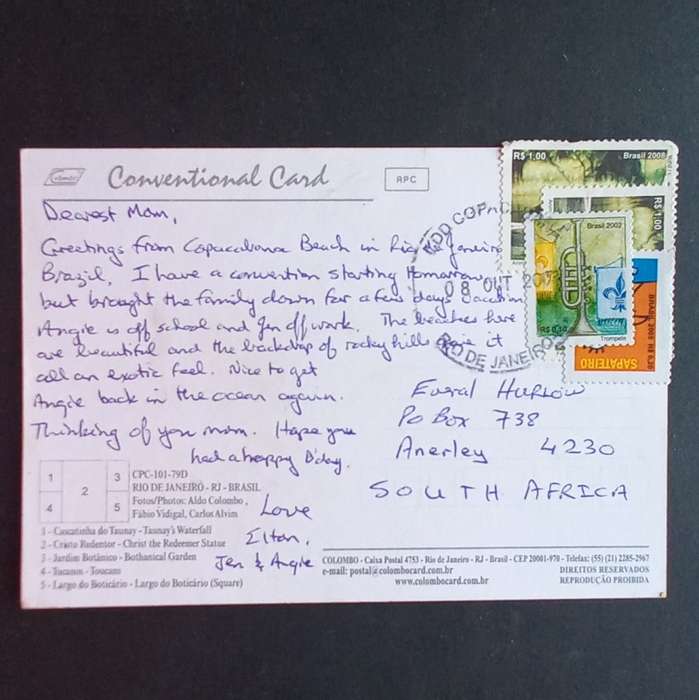 Conventional Card
RPC
R$ 1,00
Brasil 2008
R$ 1,00
Brasil 2002
R$ 0,10
Trompete
SAPATEIRO
08 OUT
RIO DE JANEIRO
Dearest Mom,
Greetings from Copacabana Beach in Rio de Janeiro
Brazil. I have a convention starting tomorrow
but brought the family down for a few days vacation
Angie is off school and Jen off work. The beaches here
are beautiful and the backdrop of rocky hills give it
all an exotic feel. Nice to get
Angie back in the ocean again.
Thinking of you mom. Hope you
had a happy B'day.
Love
Elton,
Jen & Angie
Hurlow
PO Box 738
Anerley 4230
SOUTH AFRICA
1 2 3 4 5
CPC-101-79D
RIO DE JANEIRO - RJ - BRASIL
Fotos/Photos: Aldo Colombo,
Fábio Vidigal, Carlos Alvim
1 - Cascatinha do Taunay - Taunay's Waterfall
2 - Cristo Redentor - Christ the Redeemer Statue
3 - Jardim Botânico - Bothanical Garden
4 - Tucanos - Toucans
5 - Largo do Boticário - Largo do Boticário (Square)
COLOMBO - Caixa Postal 4753 - Rio de Janeiro - RJ - Brasil - CEP 20001-970 - Telefax: (55) (21) 2285-2967
e-mail: postal@colombocard.com.br DIREITOS RESERVADOS
www.colombocard.com.br REPRODUÇÃO PROIBIDA